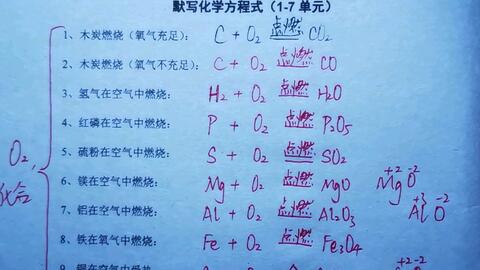 默写化学方程式（1-7 单元）
1、木炭燃烧（氧气充足）： C + O2 点燃 CO2
2、木炭燃烧（氧气不充足）： C + O2 点燃 CO
3、氢气在空气中燃烧： H2 + O2 点燃 H2O
4、红磷在空气中燃烧： P + O2 点燃 P2O5
O2
5、硫粉在空气中燃烧： S + O2 点燃 SO2
化合
6、镁在空气中燃烧： Mg + O2 点燃 MgO +2 -2 MgO
7、铝在空气中燃烧： Al + O2 点燃 Al2O3 +3 -2 Al O
8、铁在氧气中燃烧： Fe + O2 点燃 Fe3O4
+2 -2